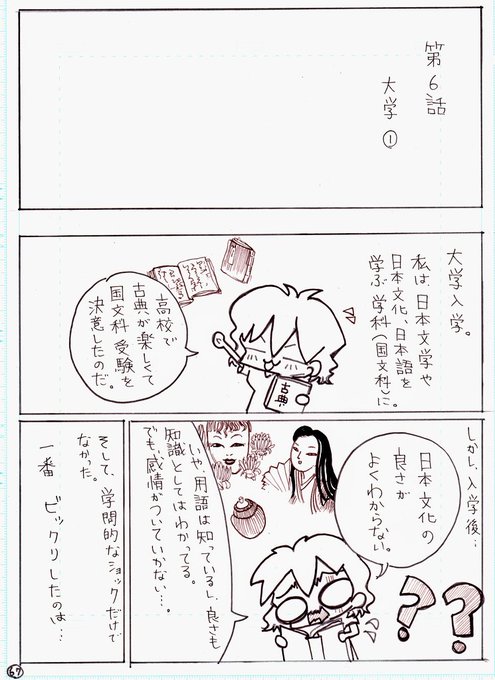 第6話
大学①
大学入学。
私は、日本文学や
日本文化、日本語を
学ぶ学科(国文科)に。
高校で
古典が楽しくて
国文科受験を
決意したのだ。
古典
しかし、入学後…
日本文化の
良さが
よくわからない。
??
いや、用語は知っているし、良さも
知識としてはわかってる。
でも、感情がついていかない…。
そして、学問的なショックだけで
なかった。
一番 ビックリしたのは…
67